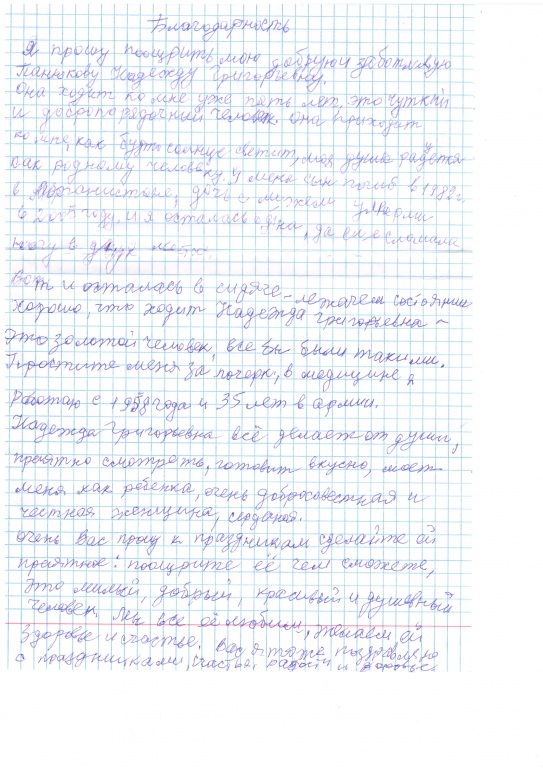 Благодарность
Я прошу поощрить мою добрую заботливую
Панькову Надежду Григорьевну.
Она ходит ко мне уже пять лет, это чуткий
и добропорядочный человек. Она приходит
ко мне, как будто солнце светит, моя душа радуется
как родному человеку. У меня сын погиб в 1982г.
в Афганистане, дочь с мужем умерли
в 2005 году, и я осталась одна, да ещё сломала
ногу в двух местах.
Вот и осталась в сидяче-лежачем состоянии
Хорошо, что ходит Надежда Григорьевна –
это золотой человек, все бы были такими.
Простите меня за почерк, в медицине я
работаю с 1958 года и 35 лет в армии.
Надежда Григорьевна всё делает от души,
приятно смотреть, готовит вкусно, моет
меня как ребенка, очень добросовестная и
честная женщина,
очень Вас прошу к праздникам сделайте ей
приятное: поощрите её чем сможете,
Это милый, добрый, красивый и душевный
человек. Мы все её любим, желаем ей
здоровье и счастье. Вас я тоже поздравляю
с праздниками, счастья, радости и здоровья